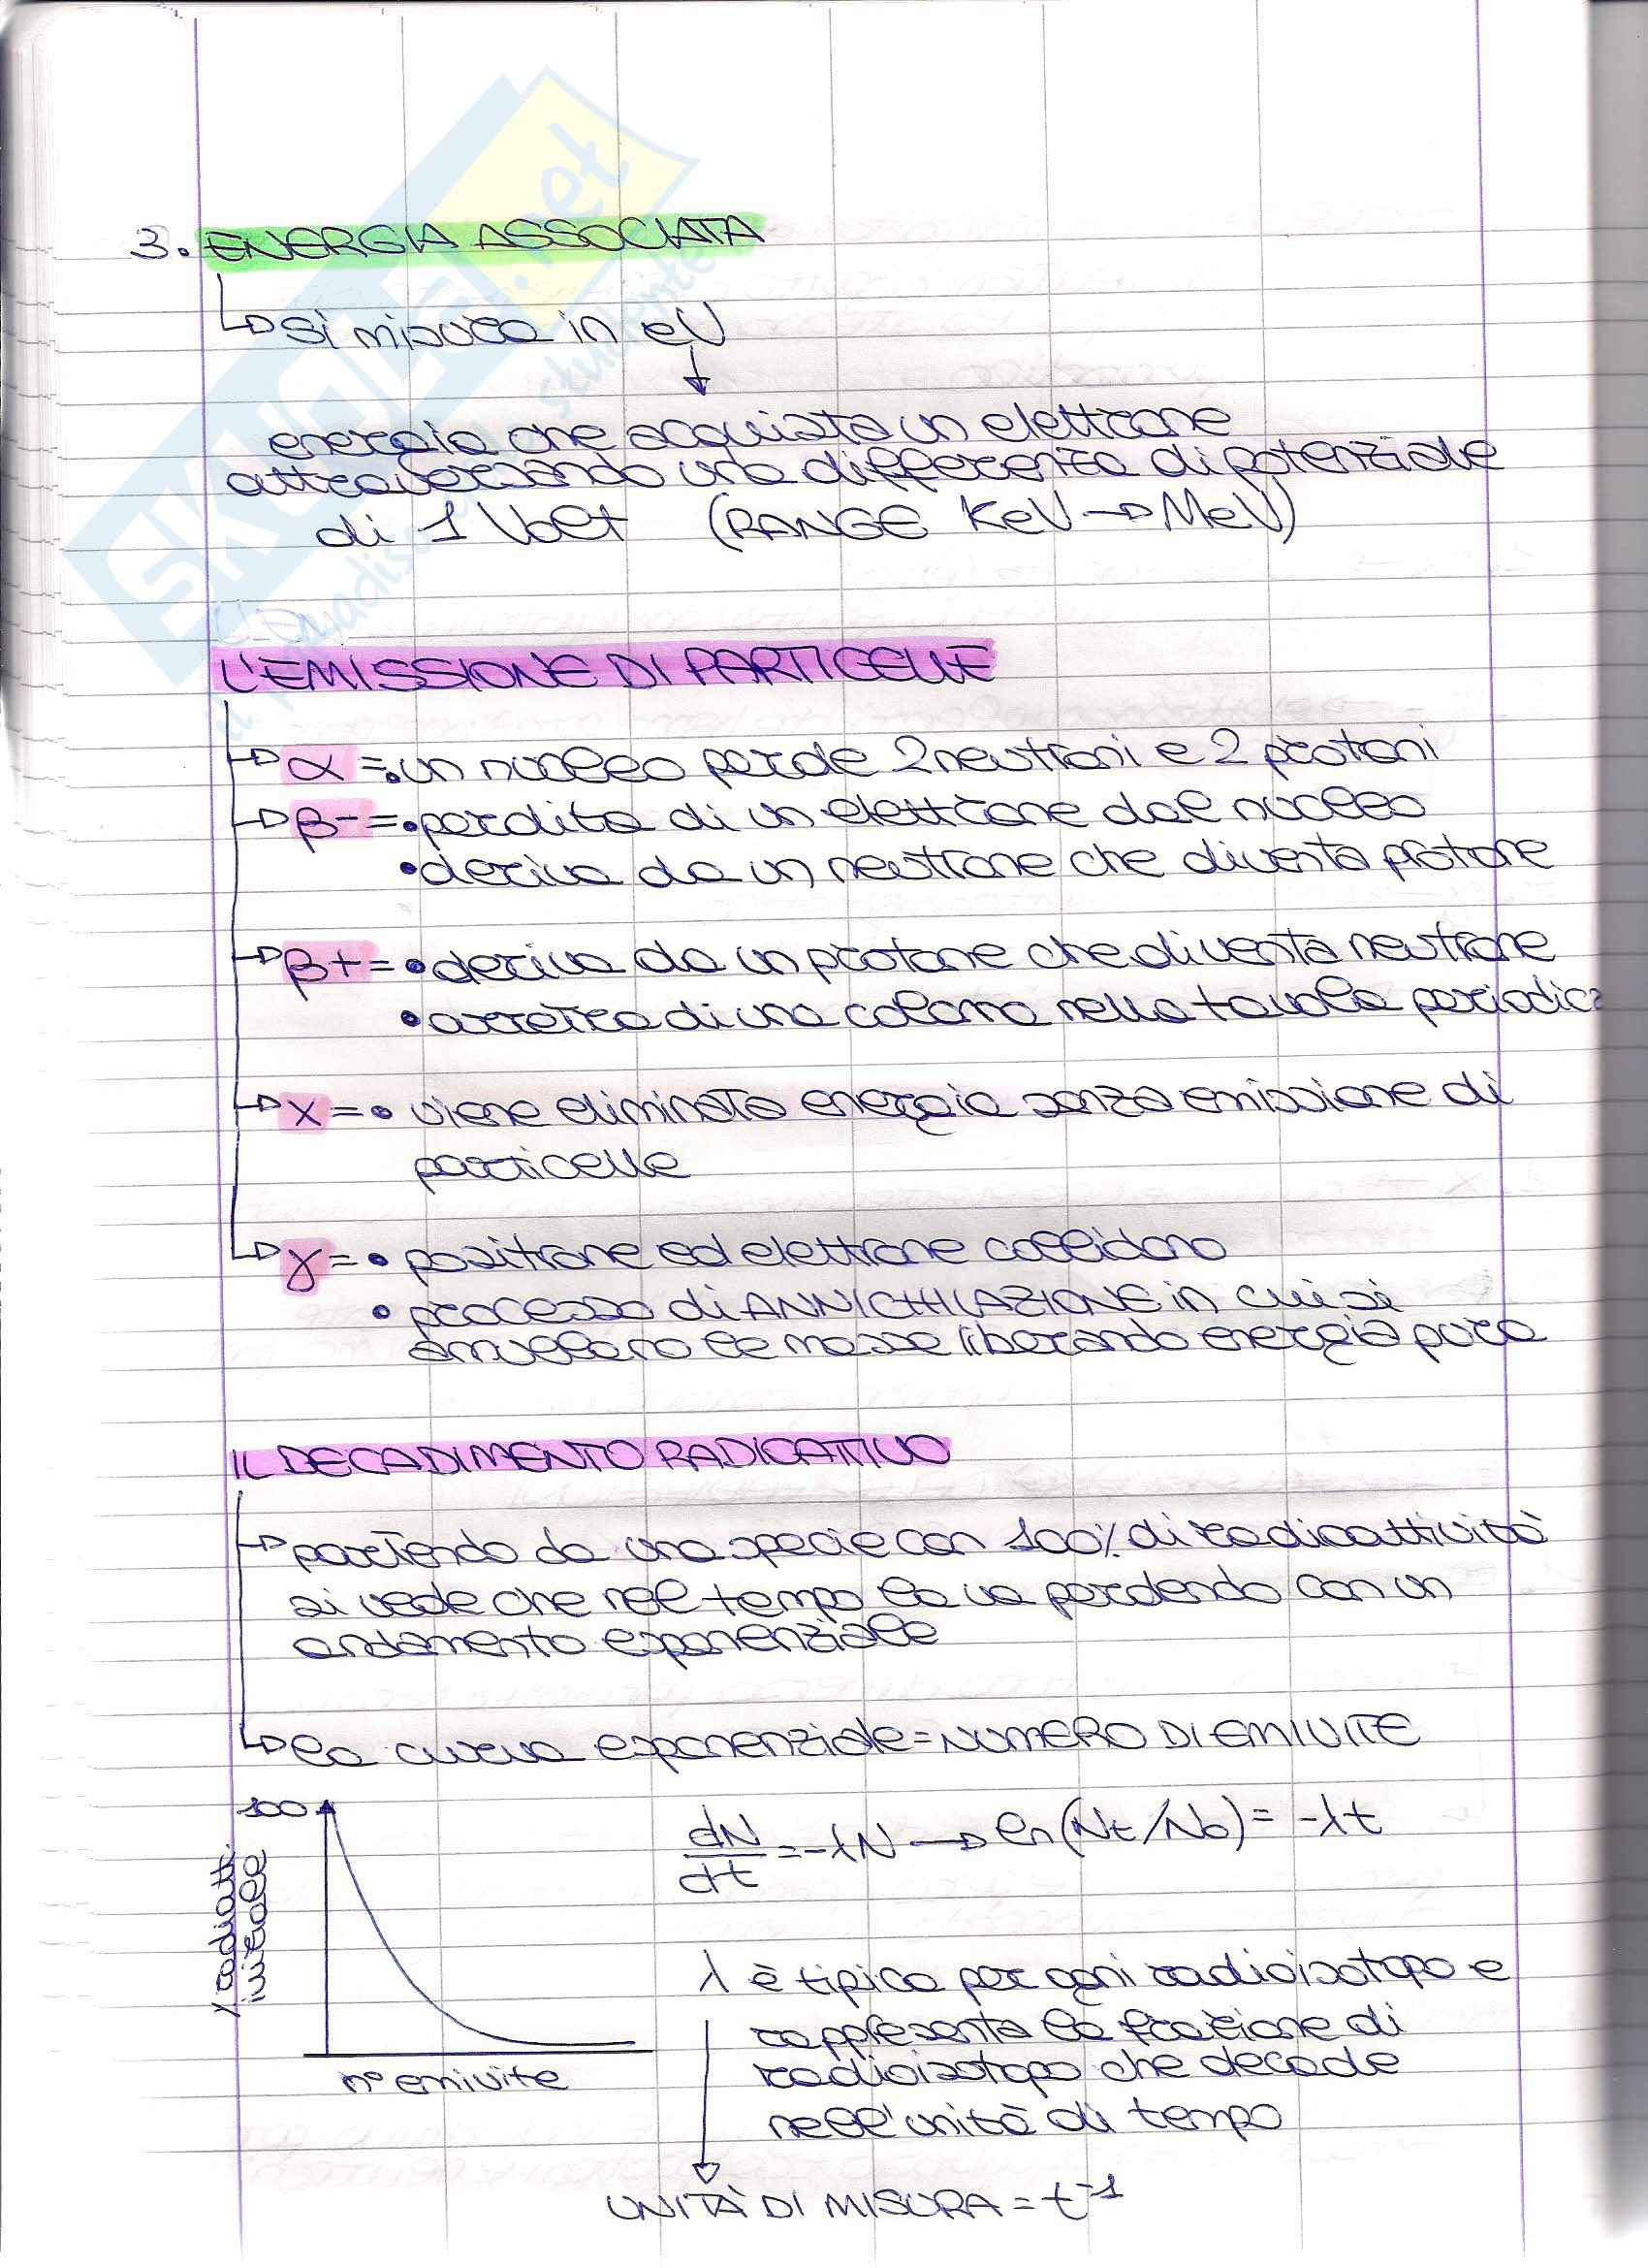 3. ENERGIA ASSOCIATA
si misura in eV
energia che acquista un elettrone
attraversando una differenza di potenziale
di 1 Volt (RANGE KeV → MeV)
L'EMISSIONE DI PARTICELLE
α = • un nucleo perde 2 neutroni e 2 protoni
β- = • perdita di un elettrone dal nucleo
• deriva da un neutrone che diventa protone
β+ = • deriva da un protone che diventa neutrone
• arretra di una colonna nella tavola periodica
x = • viene eliminata energia senza emissione di
particelle
γ = • positrone ed elettrone collidono
• processo di ANNICHILAZIONE in cui si
annullano le masse liberando energia pura
IL DECADIMENTO RADIOATTIVO
partendo da una specie con 100% di radioattività
si vede che nel tempo la va perdendo con un
andamento esponenziale
la curva esponenziale = NUMERO DI EMIVITE
100
radioatti.
iniziale
n° emivite
dN/dt = -λN → ln(Nt/N0) = -λt
λ è tipica per ogni radioisotopo e
rappresenta la frazione di
radioisotopo che decade
nell'unità di tempo
UNITÀ DI MISURA = t⁻¹
SKUOLA.net